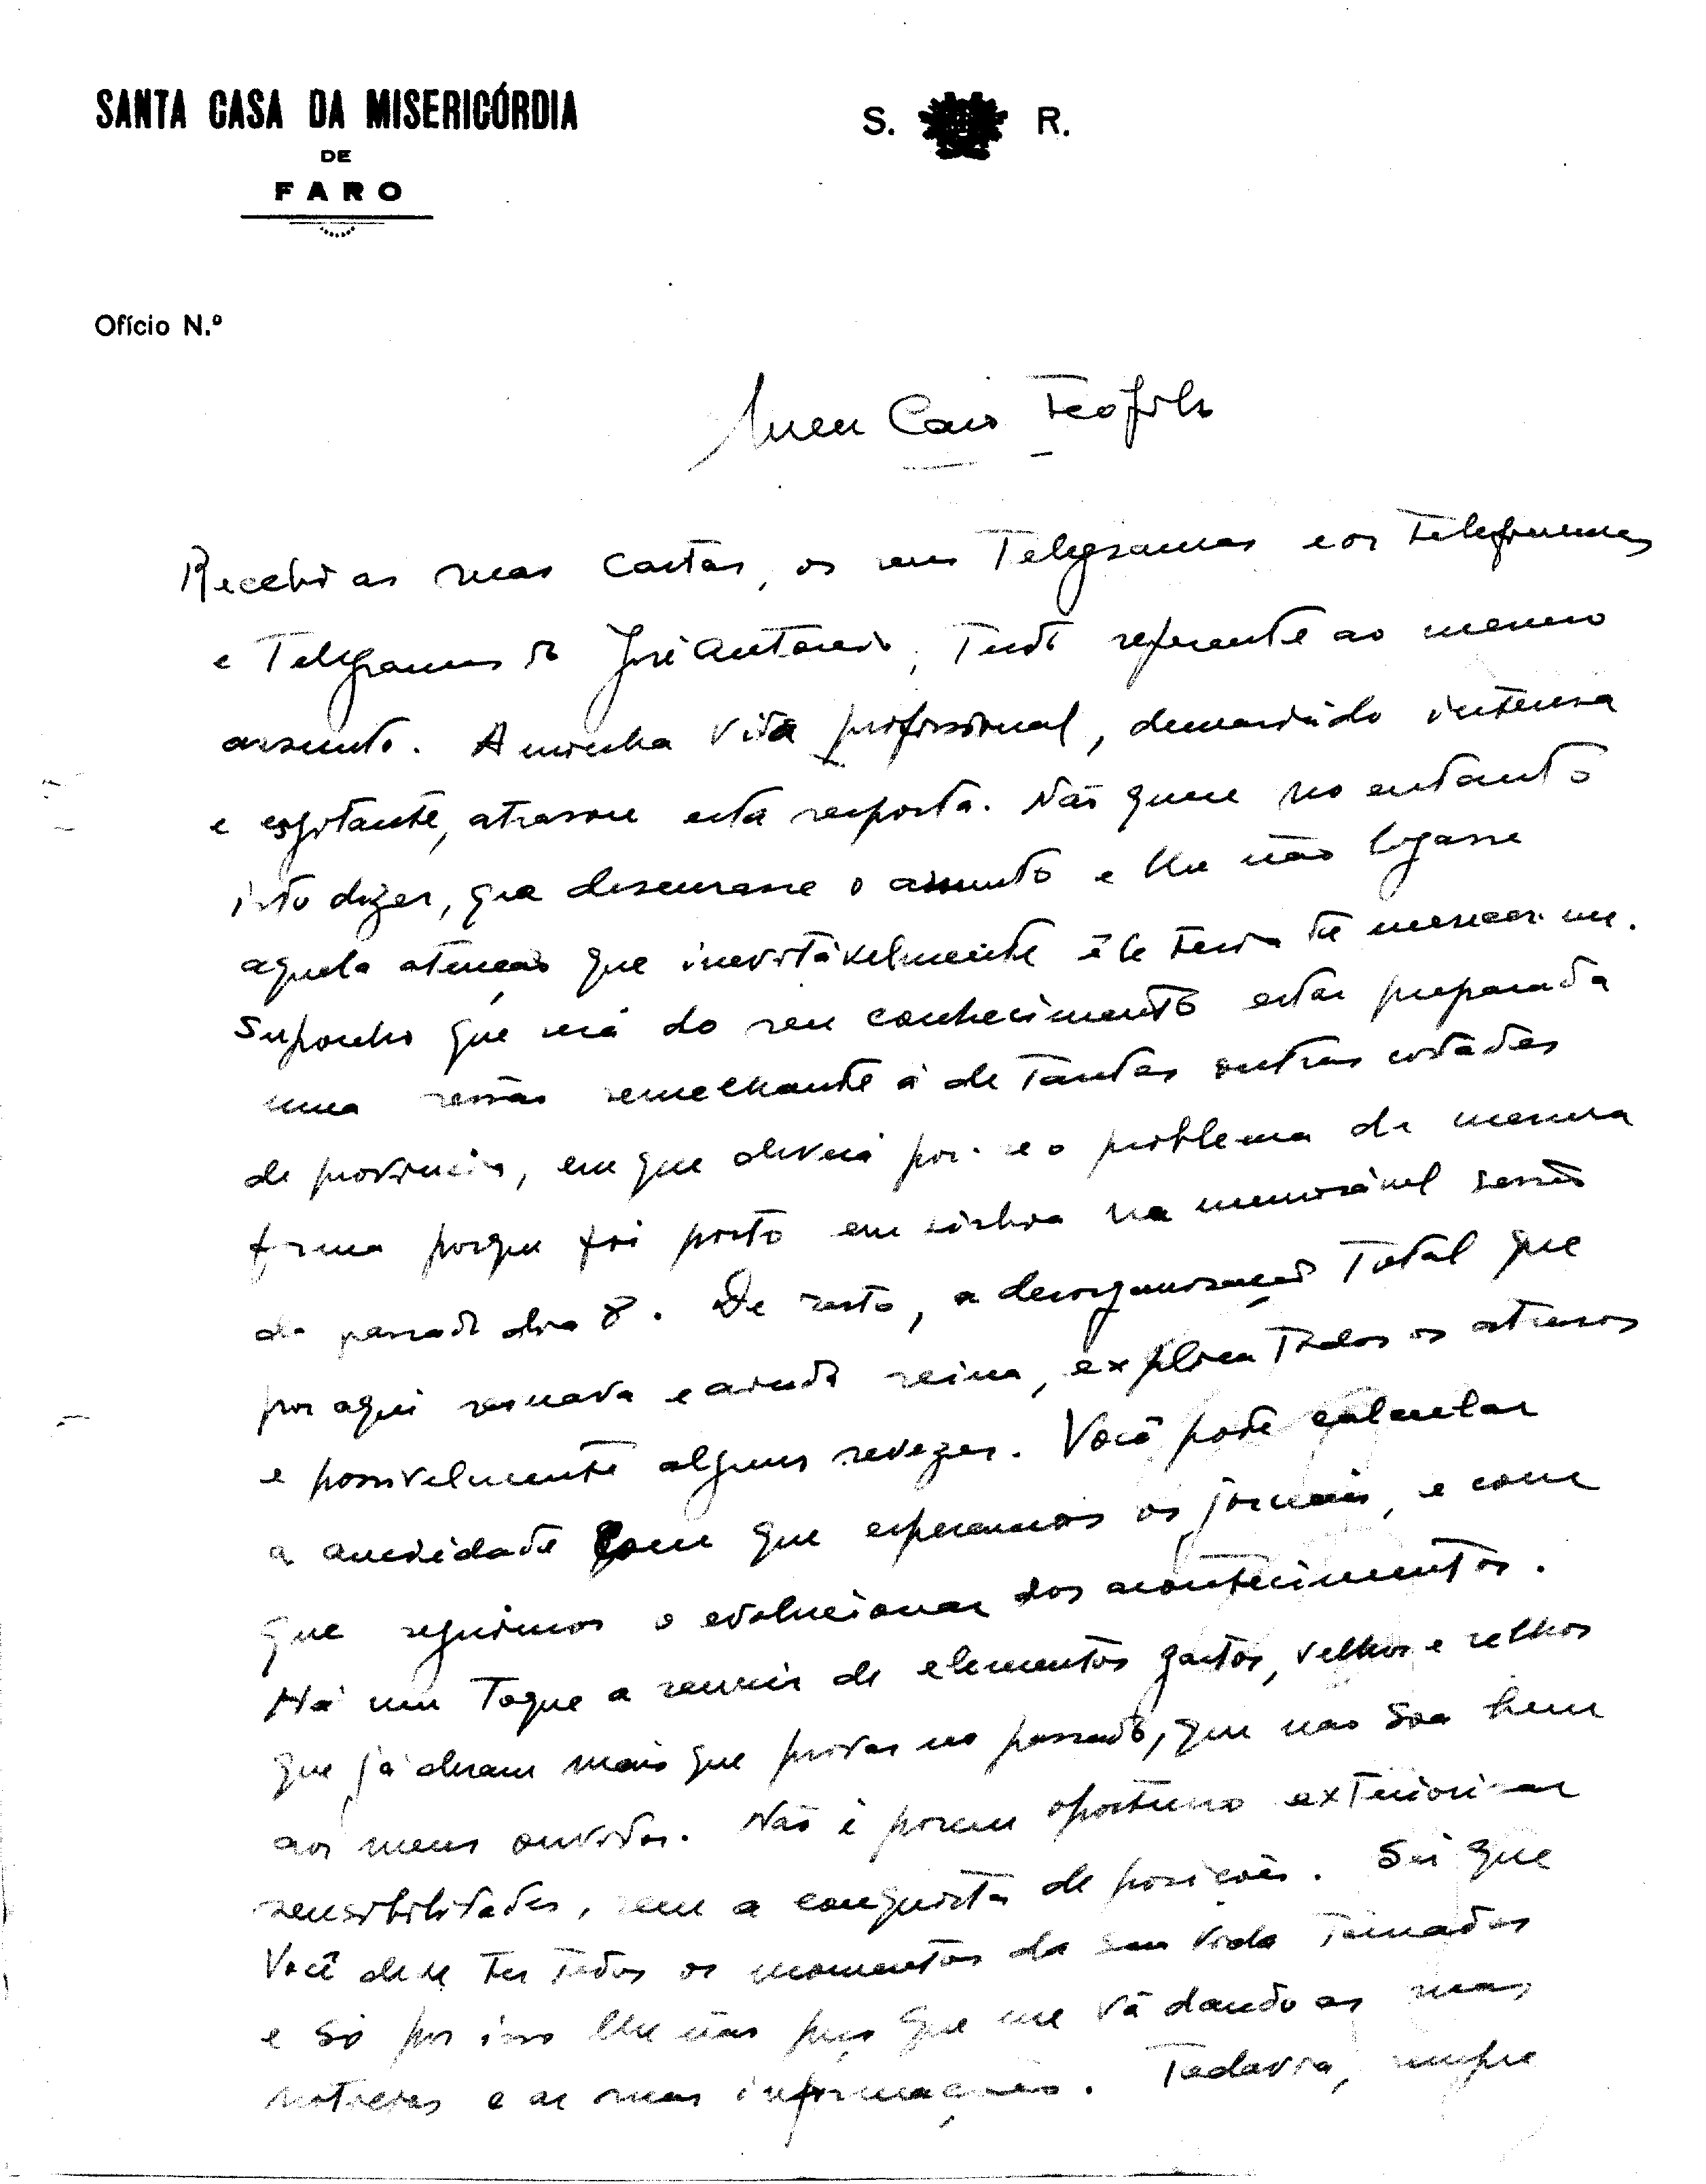 SANTA CASA DA MISERICÓRDIA
DE
FARO
S. R.
Ofício N.º
Meu Caro Teófilo
Recebi as suas cartas, os seus Telegramas e os telefonemas
e Telegramas do José António, Tudo referente ao mesmo
assunto. A minha vida profissional, demasiado intensa
e esgotante, atrasou esta resposta. Não quere no entanto
isto dizer, que descurasse o assunto e lhe não ligasse
aquela atenção que inevitávelmente êle teria de merecer-me.
Suponho que será do seu conhecimento estar preparada
uma sessão semelhante á de Tantas outras cidades
de provincia, em que deverá pôr-se o problema da mesma
forma porque foi posto em Lisboa na memorável sessão
do passado dia 8. De resto, a desorganisação Total que
por aqui reinava e ainda reina, explica Todos os atrasos
e possivelmente alguns revezes. Você pode calcular
a ansiedade com que esperamos os jornais, e com
que seguimos o evolucionar dos acontecimentos.
Há um Toque a reunir de elementos gastos, velhos e relhos
que já deram mais que provas no passado, que não soa bem
aos meus ouvidos. Não é porem oportuno exteriorisar
sensibilidades, sem a conquista de posições. Sei que
Você deve ter Todos os momentos da sua vida Tomados
e só por isso lhe não peço que me vá dando as suas
noticias e as suas informações. Todavia, sempre